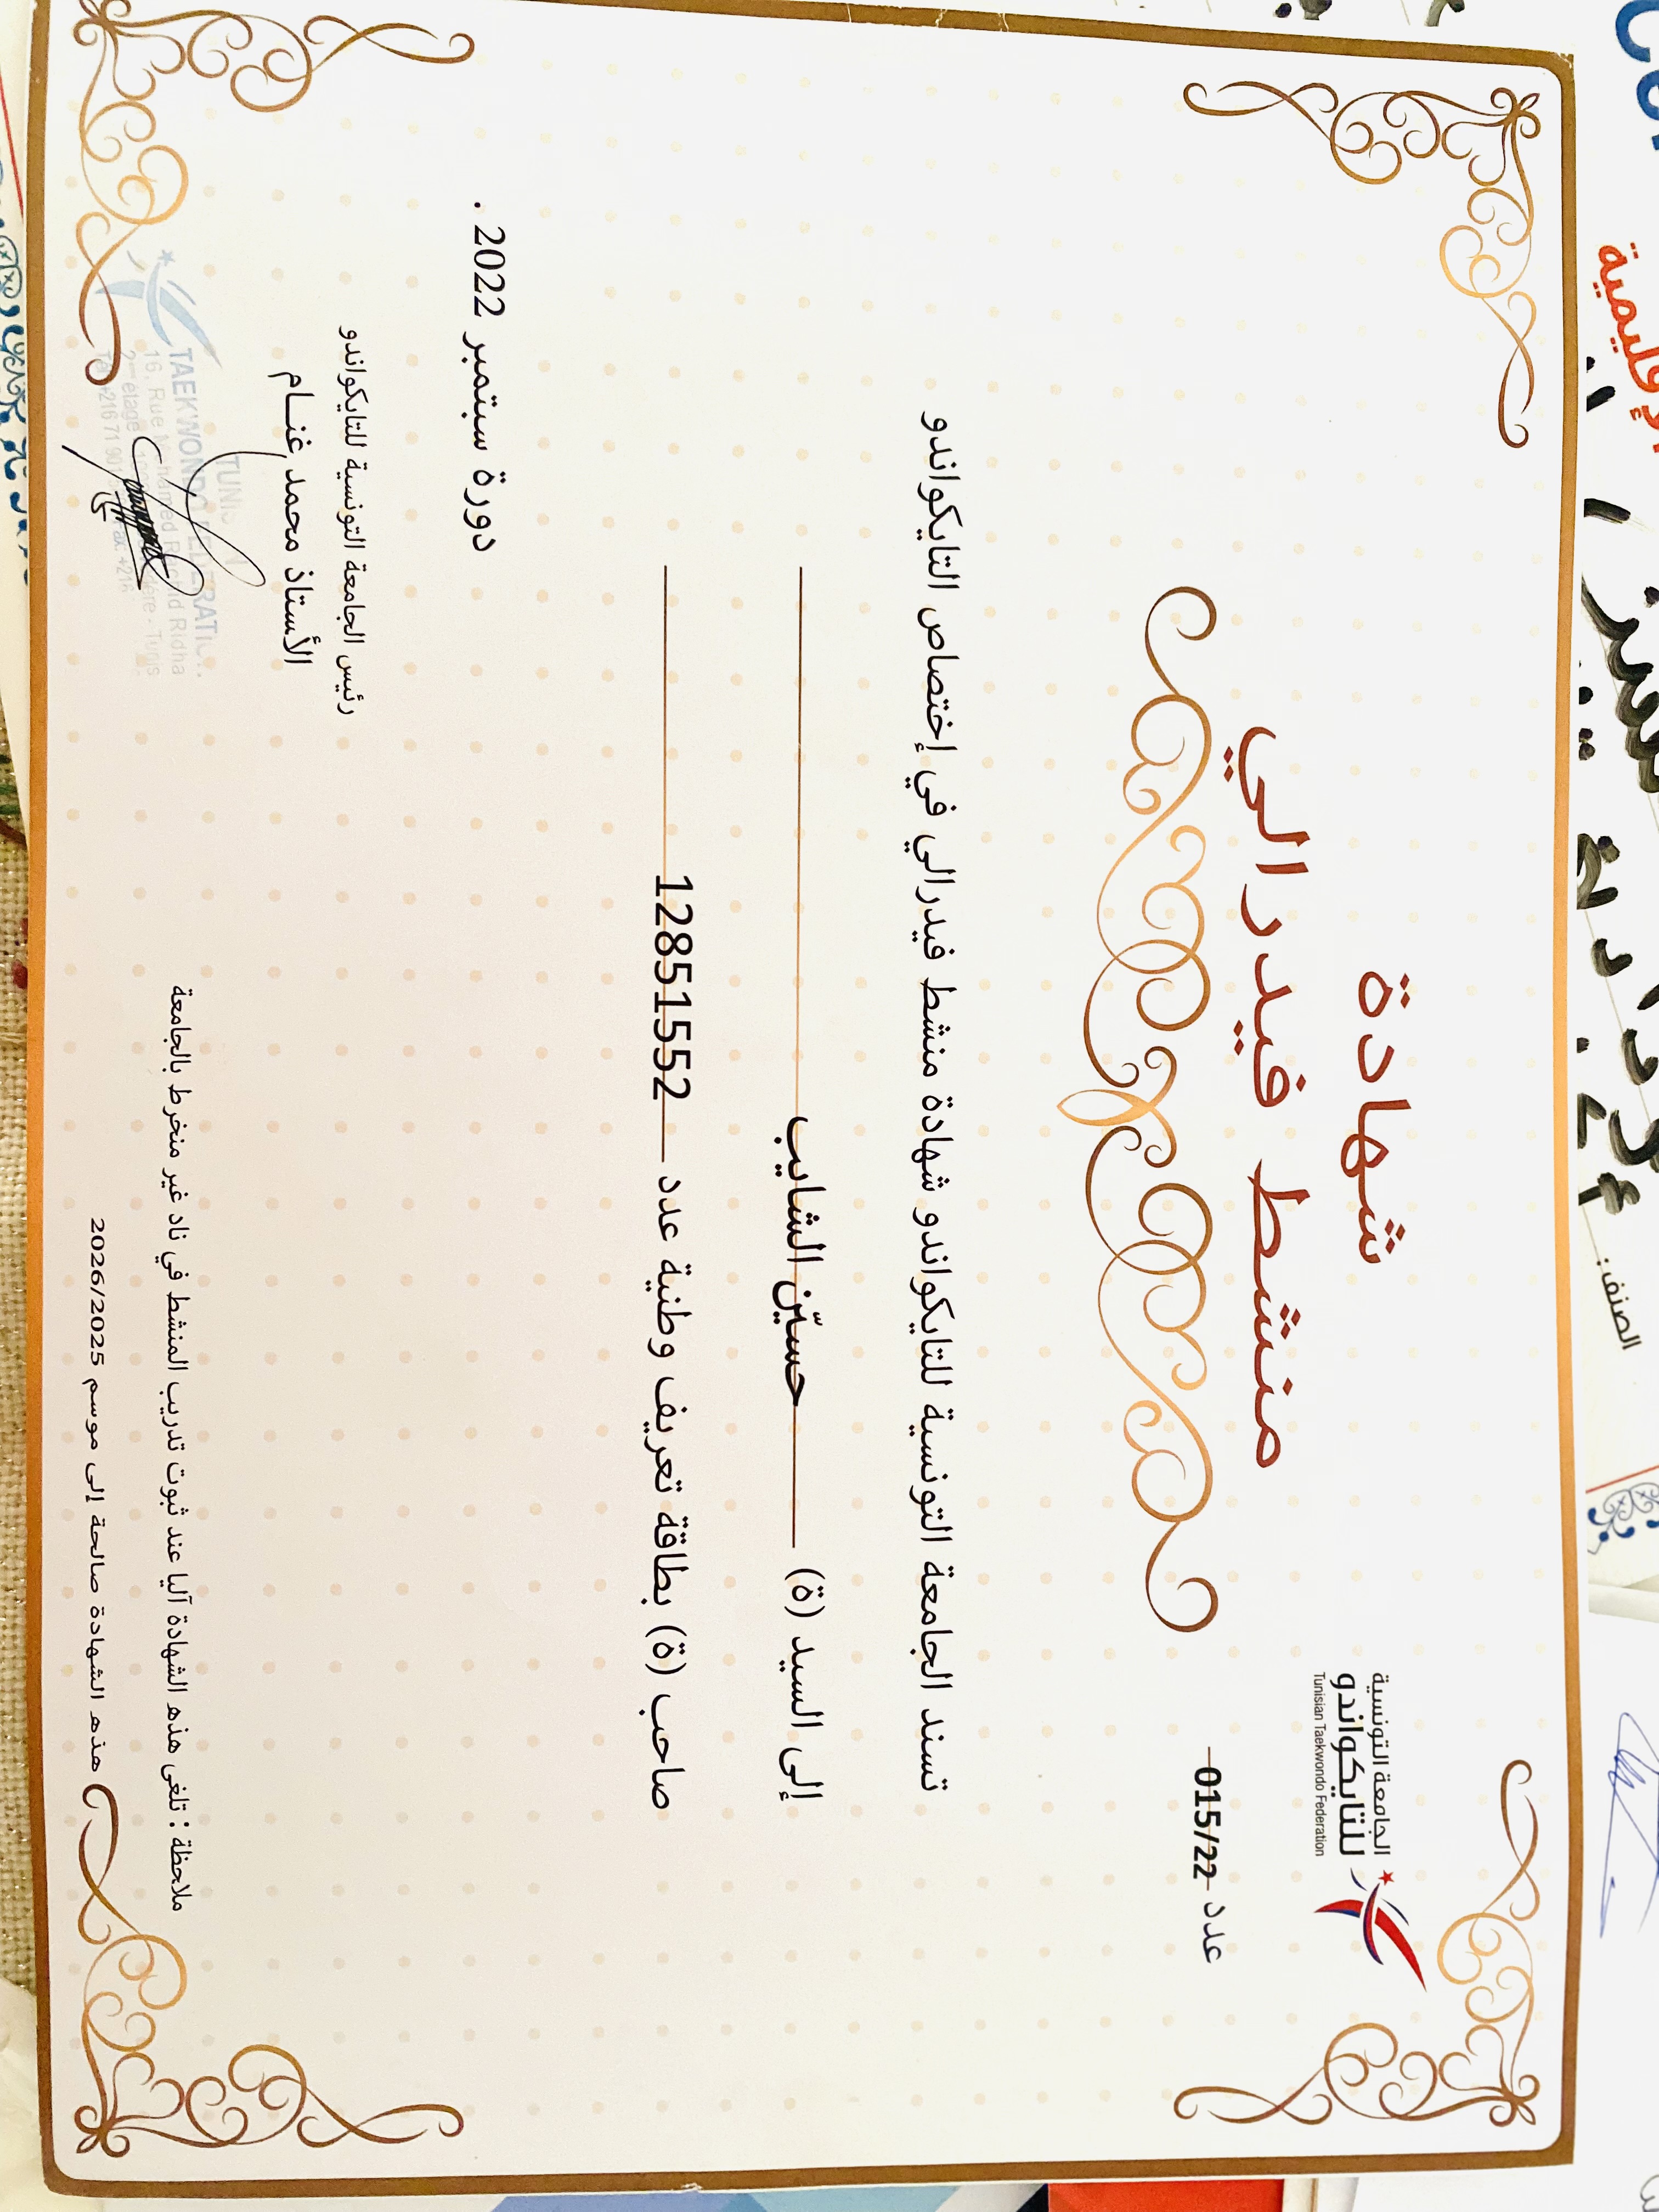 الجامعة التونسية
للتايكواندو
Tunisian Taekwondo Federation
عدد 015/22
شهادة
منشط فيدرالي
تسند الجامعة التونسية للتايكواندو شهادة منشط فيدرالي في إختصاص التايكواندو
إلى السيد (ة) حسيّن الشايب
صاحب (ة) بطاقة تعريف وطنية عدد 12851552
دورة سبتمبر 2022 .
رئيس الجامعة التونسية للتايكواندو
الأستاذ محمد غنام
TAEKWONDO
16, Rue
2ème étage
Ridha
Tunis
ملاحظة : تلغى هذه الشهادة آليا عند ثبوت تدريب المنشط في ناد غير منخرط بالجامعة
هذه الشهادة صالحة إلى موسم 2026/2025
الصنف :